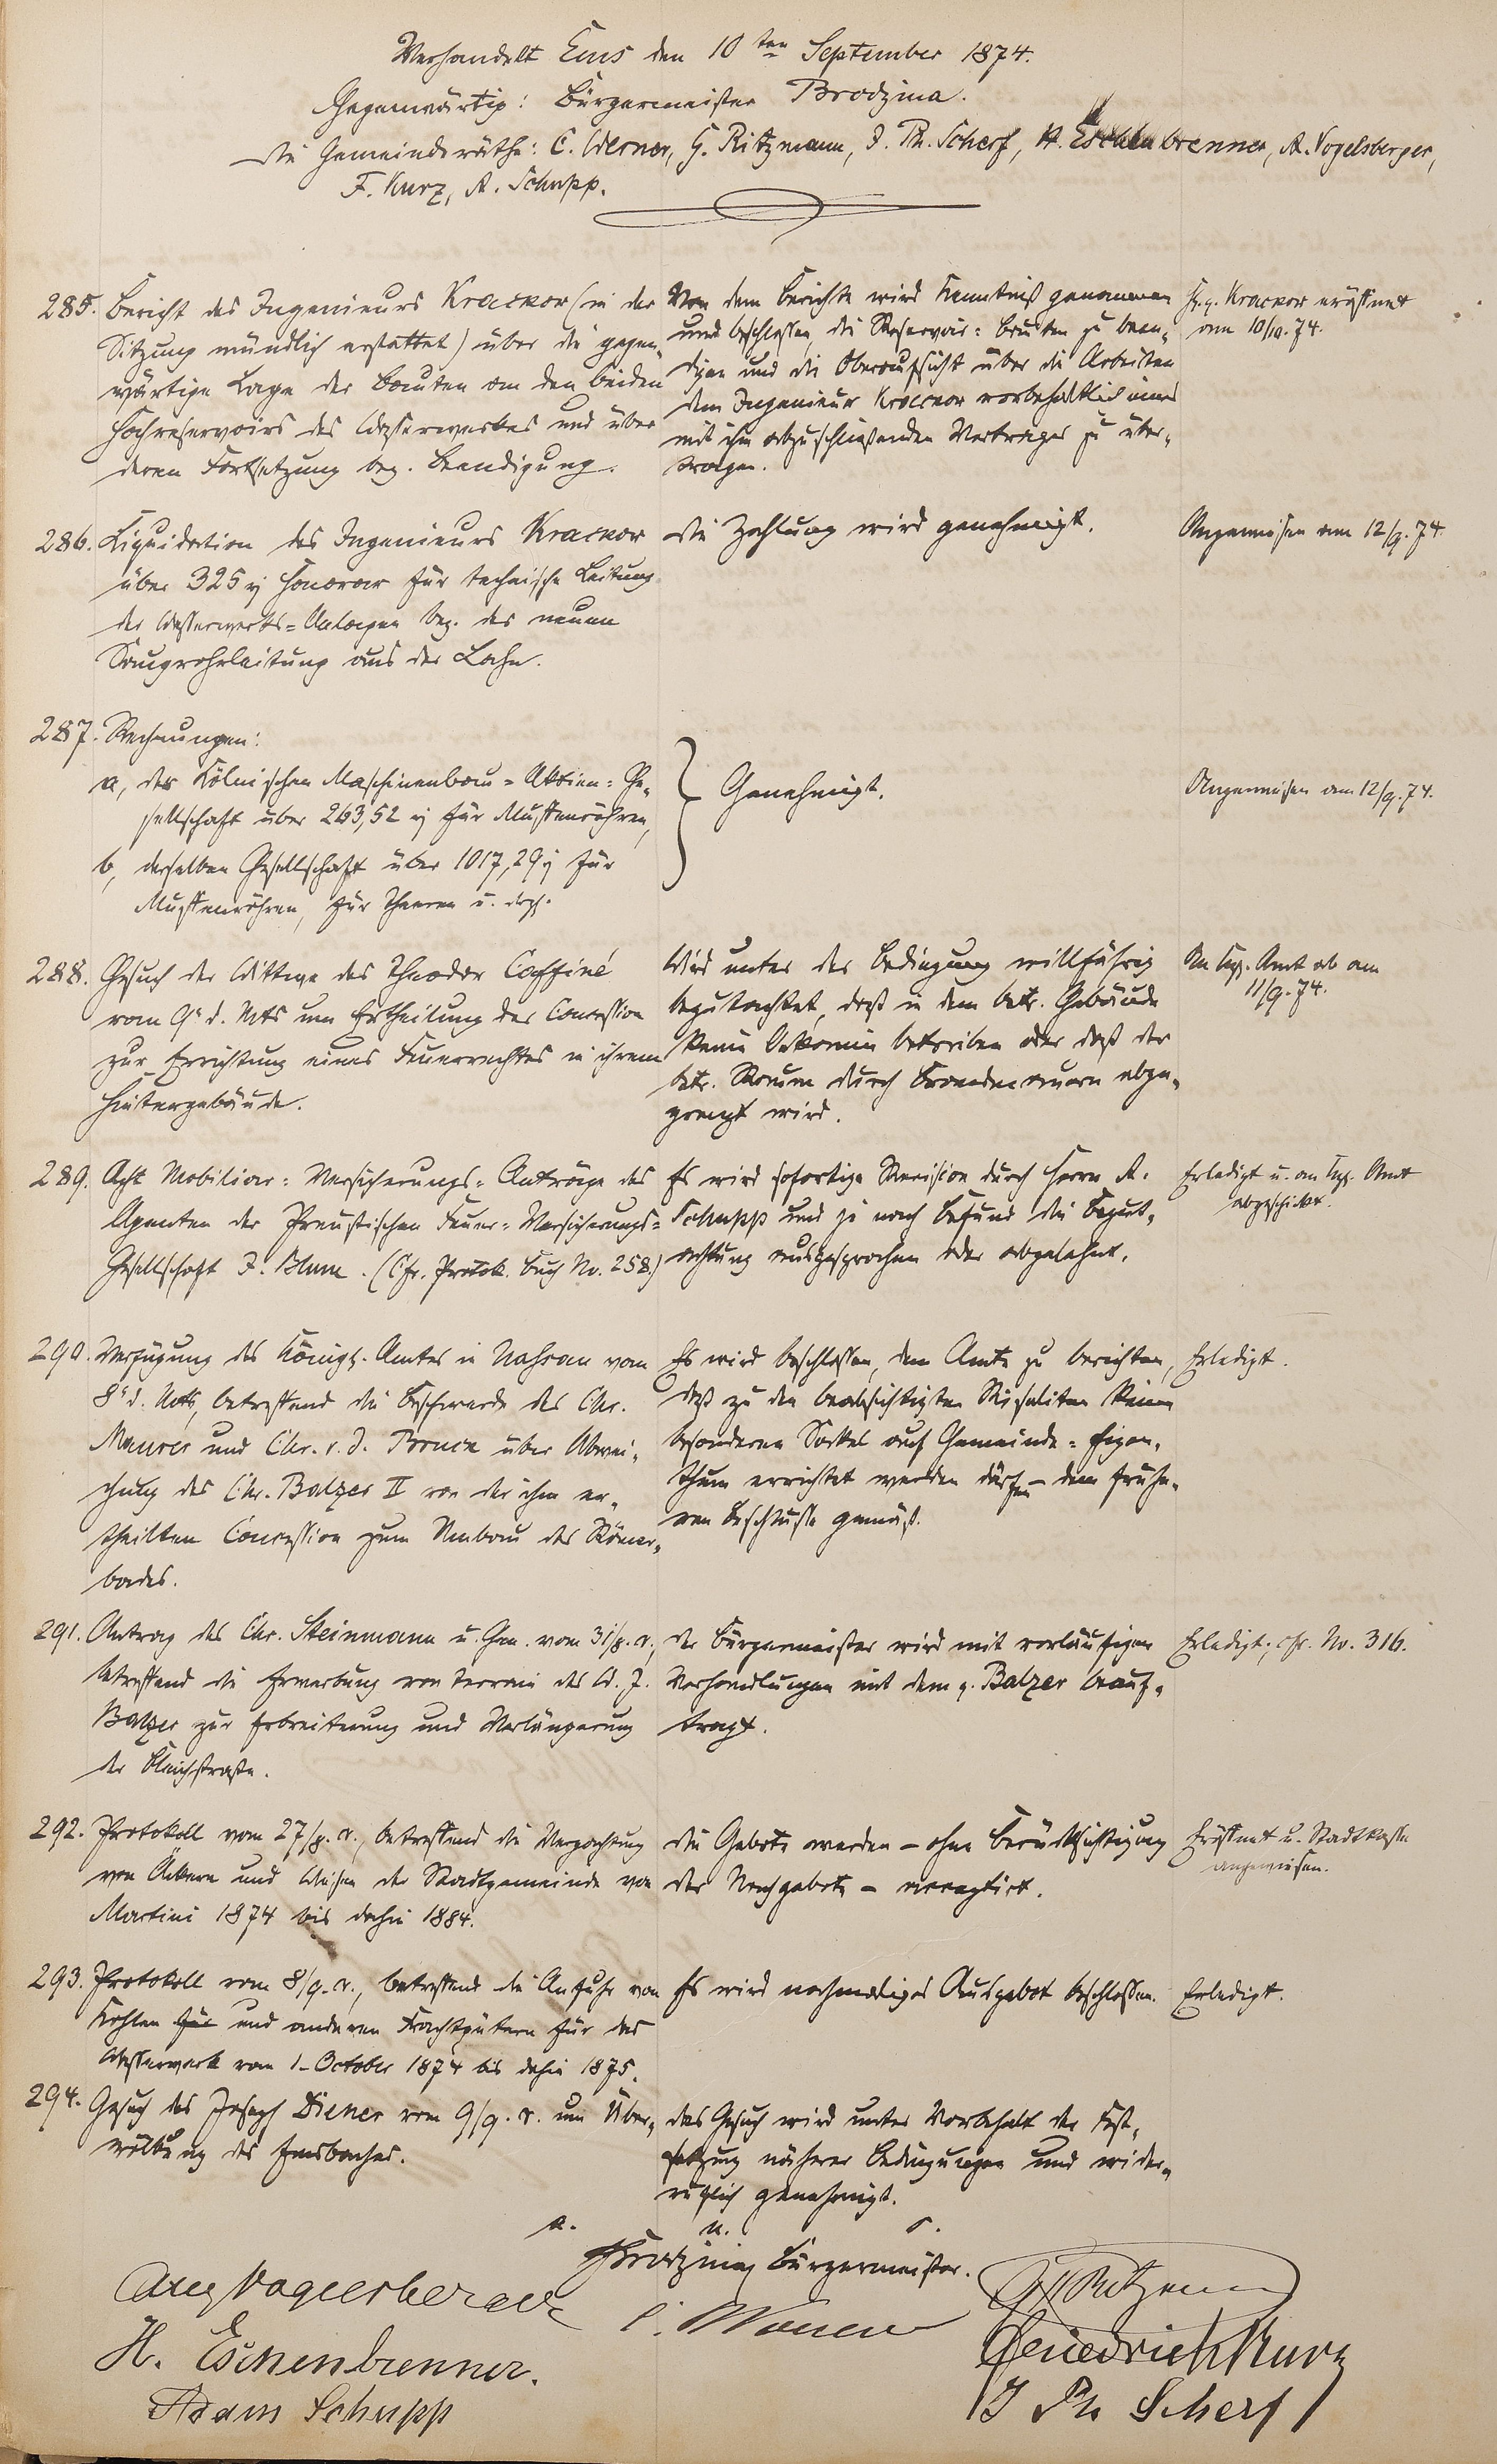 Verhandelt Ems den 10ten September 1874.
Gegenwärtig: Bürgermeister Brodzina.
Die Gemeinderäthe: C. Werner, G. Ritzmann, J. Ph. Scherf, H. Eschenbrenner, A. Vogelsberger,
F. Kurz, A. Schupp.
285. Bericht des Ingenieurs Krackow (in der
Sitzung mündlich erstattet) über die gegen-
wärtige Lage der Bauten an den beiden
Hochreservoirs des Wasserwerkes und über
deren Fortsetzung bez. Beendigung.
Von dem Berichte wird Kenntniß genommen
und beschlossen, die Reservoir-Bauten zu been-
digen und die Oberaufsicht über die Arbeiten
dem Ingenieur Krackow vorbehaltlich eines
mit ihm abzuschließenden Vertrages zu über-
tragen.
Hrn. Krackow eröffnet
am 10/9.74.
286. Liquidation des Ingenieurs Krackow
über 325 Honorar für technische Leitung
der Wasserwerks-Anlagen bez. der neuen
Saugrohrleitung aus der Lahn.
Die Zahlung wird genehmigt.
Angewiesen am 12/9.74.
287. Rechnungen:
a, der Kölnischen Maschinenbau-Aktien-Ge-
sellschaft über 263,52 für Muffenröhren,
b, derselben Gesellschaft über 1017,29 für
Muffenröhren, für Theeren u. drgl.
Genehmigt.
Angewiesen am 12/9.74.
288. Gesuch der Wittwe des Theodor Caffiné
vom 9t d. Mts um Ertheilung der Concession
zur Errichtung eines Feuerrechtes in ihrem
Hintergebäude.
Wird unter der Bedingung willfährig
begutachtet, daß in dem betr. Gebäude
keine Oekonomie betrieben oder daß der
betr. Raum durch Brandmauern abge-
grenzt wird.
An Kgl. Amt ab am
11/9.74.
289. Acht Mobiliar-Versicherungs-Anträge des
Agenten der Preußischen Feuer-Versicherungs-
Gesellschaft J. Blum. (Cfr. Protok. Buch No. 258.)
Es wird sofortige Revision durch Herrn A.
Schupp und je nach Befund die Begut-
achtung ausgesprochen oder abgelehnt.
Erledigt u. an Kgl. Amt
abgeschickt.
290. Verfügung des Königl. Amtes in Nassau vom
8t d. Mts, betreffend die Beschwerde des Chr.
Maurer und Chr. v. d. über Abwei-
chung des Chr. Balzer II von der ihm er-
theilten Concession zum Umbau des Römer-
bades.
Es wird beschlossen, dem Amte zu berichten,
daß zu den beabsichtigten Risaliten keine
besonderen Sockel auf Gemeinde-Eigen-
thum errichtet werden dürfen – dem frühe-
ren Beschlusse gemäß.
Erledigt.
291. Antrag des Chr. Steinmann u. Gen. vom 31/8. c.,
betreffend die Erwerbung von Terrain des W. J.
Balzer zur Erbreiterung und Verlängerung
der Bleichstraße.
Der Bürgermeister wird mit vorläufigen
Verhandlungen mit dem p. Balzer beauf-
tragt.
Erledigt; cfr. No. 316.
292. Protokoll vom 27/8. c., betreffend die Verpachtung
von Äckern und Wiesen der Stadtgemeinde von
Martini 1874 bis dahin 1884.
Die Gebote werden – ohne Berücksichtigung
der Nachgebote – acceptirt.
Eröffnet u. Stadtkasse
angewiesen.
293. Protokoll vom 8/9. c., betreffend die Anfuhr von
Kohlen für und anderen Frachtgütern für das
Wasserwerk vom 1. October 1874 bis dahin 1875.
Es wird nochmaliges Ausgebot beschlossen.
Erledigt.
294. Gesuch des Joseph Diener vom 9/9. c. um Über-
wölbung des Emsbaches.
Das Gesuch wird unter Vorbehalt der Fest-
setzung näherer Bedingungen und wider-
ruflich genehmigt.
a. u. s.
Brodzina, Bürgermeister.
Aug Vogelsberger
C. Werner
G. Ritzmann
H. Eschenbrenner.
Friedrich Kurz
Adam Schupp
J Ph Scherf